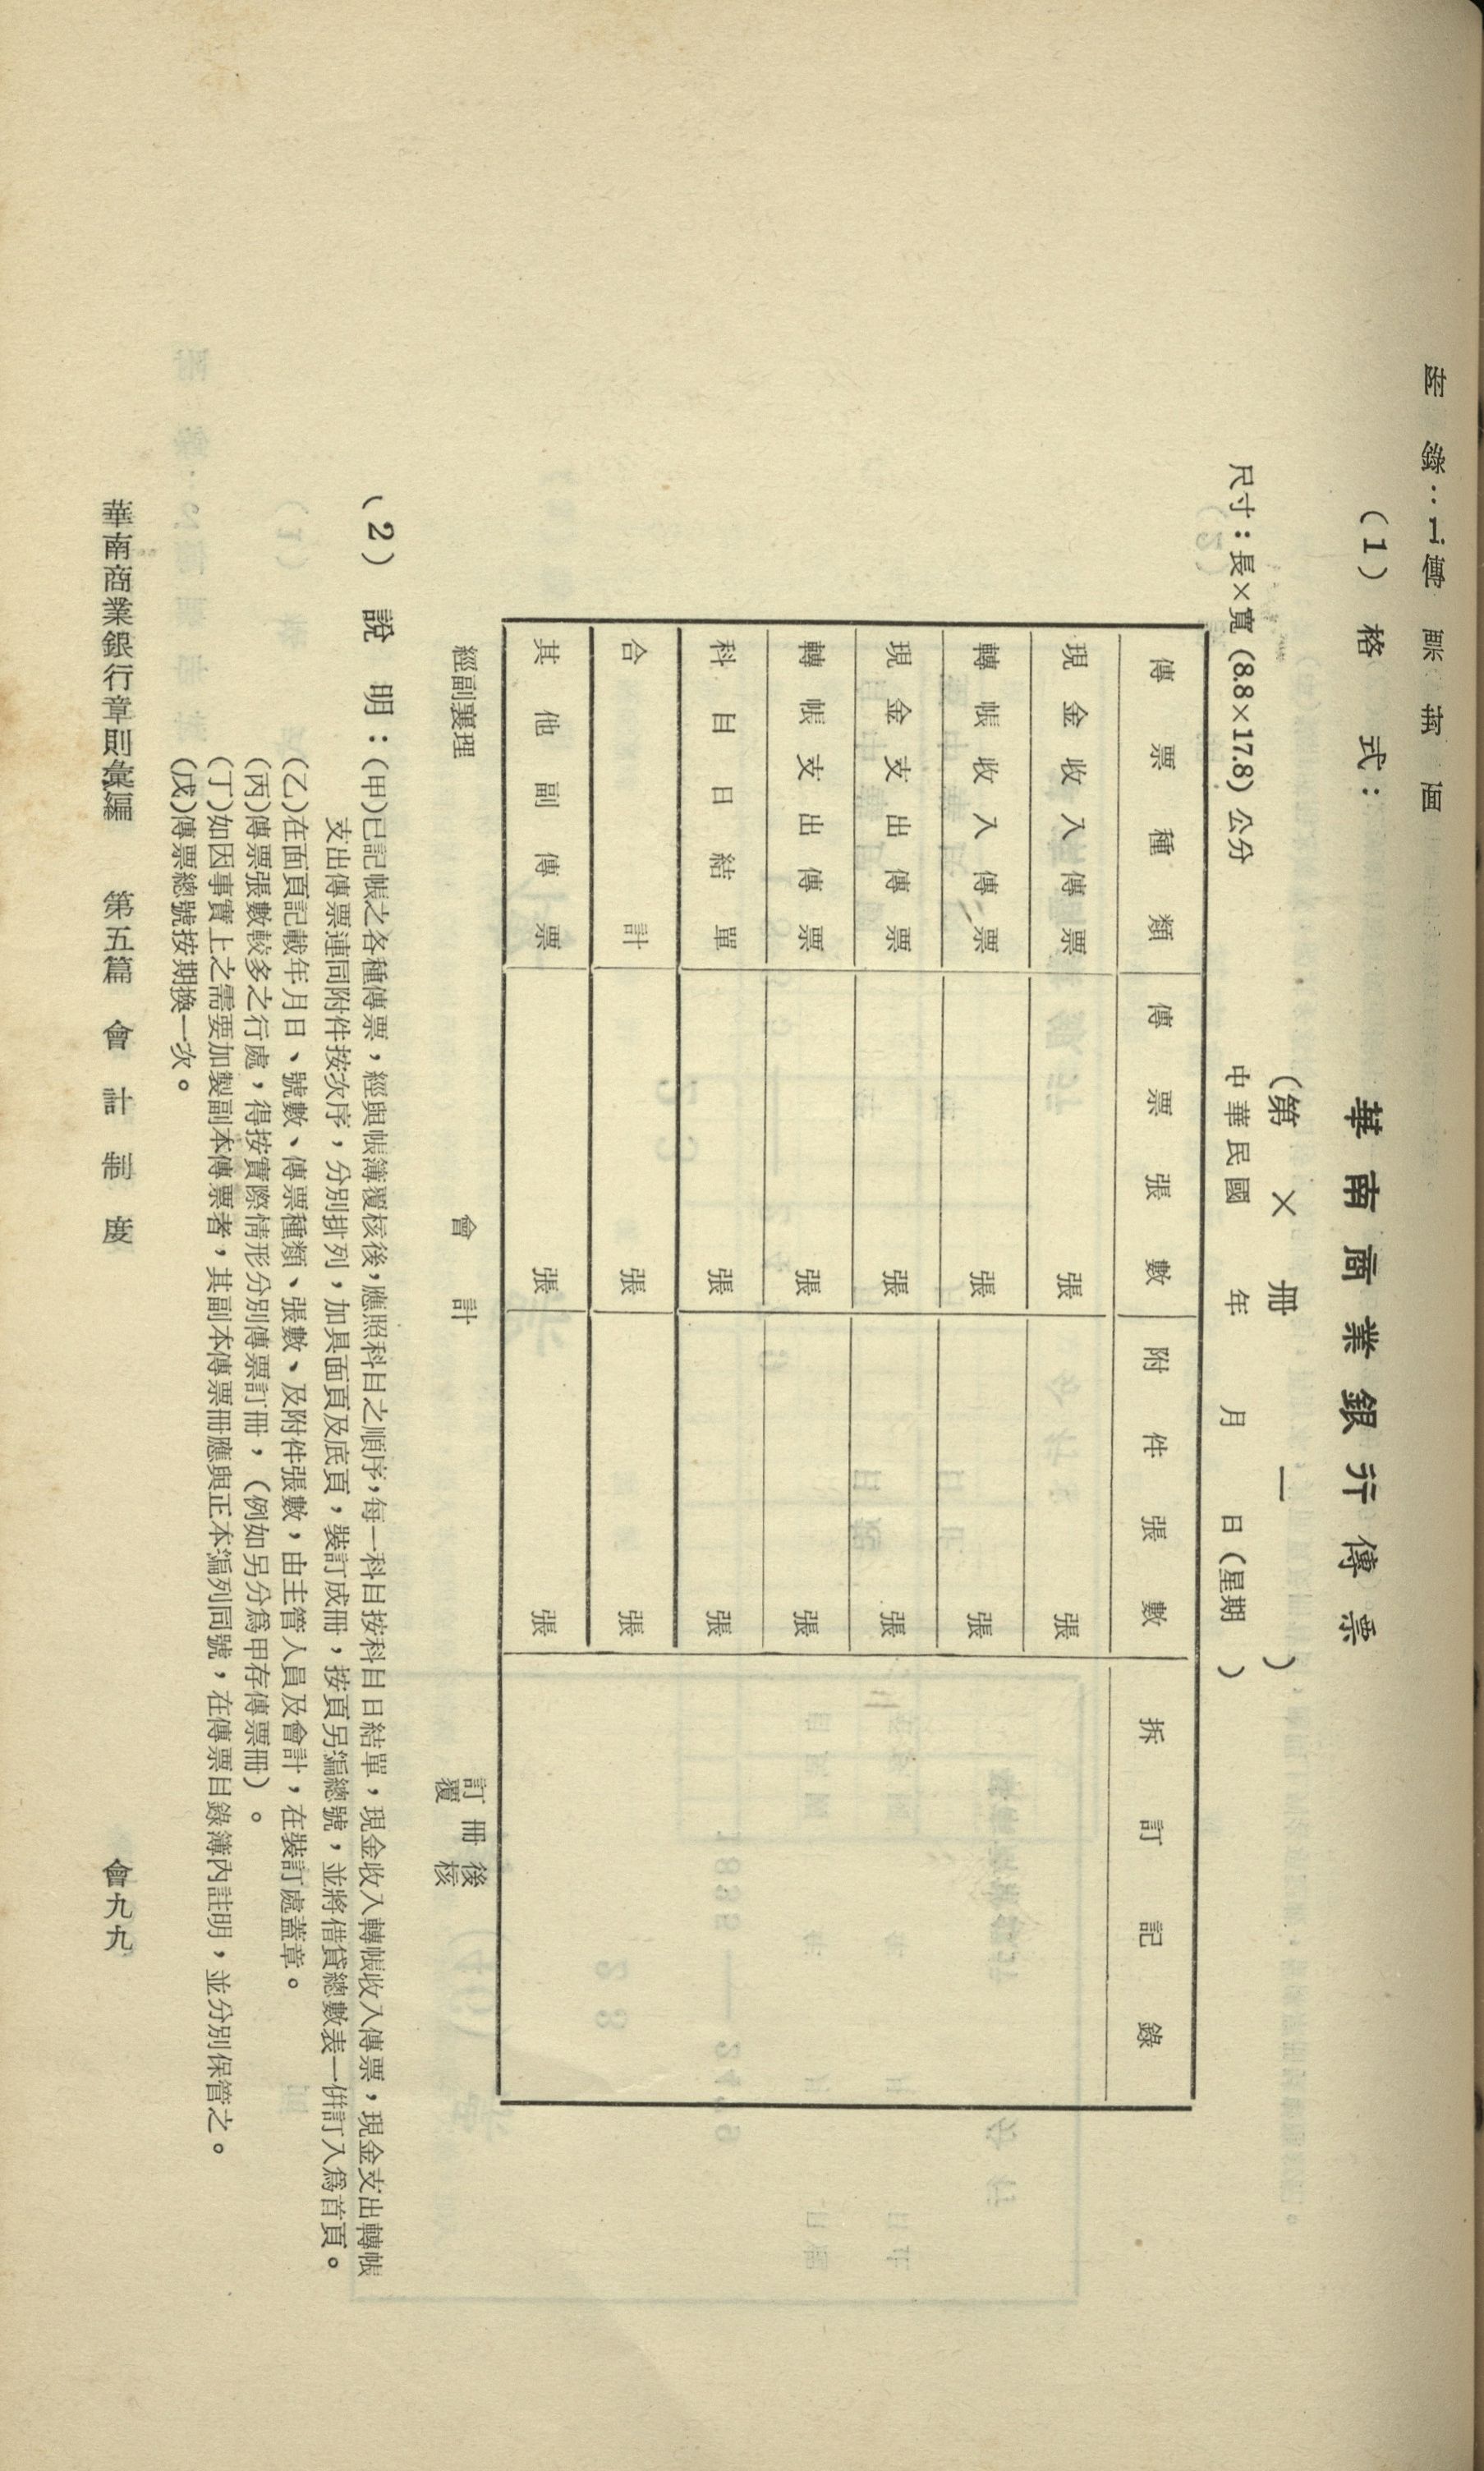 附　錄：1.傳票封面
（1）格　式：
華南商業銀行傳票
（第　×　冊　一　）
尺寸：長×寬 (8.8×17.8) 公分
中華民國　年　月　日（星期　）
傳票種類　傳票張數　附件張數　拆訂記錄
現金收入傳票　張　張
轉帳收入傳票　張　張
現金支出傳票　張　張
轉帳支出傳票　張　張
科目日結單　張　張
合計　張　張
其他副傳票　張　張
經副襄理　會計　訂冊後覆核
（2）說　明：(甲)已記帳之各種傳票，經與帳簿覆核後，應照科目之順序，每一科目按科目日結單，現金收入轉帳收入傳票，現金支出轉帳
支出傳票連同附件按次序，分別排列，加具面頁及底頁，裝訂成冊，按頁另編總號，並將借貸總數表一併訂入爲首頁。
(乙)在面頁記載年月日、號數、傳票種類、張數、及附件張數，由主管人員及會計，在裝訂處蓋章。
(丙)傳票張數較多之行處，得按實際情形分別傳票訂冊，（例如另分爲甲存傳票冊）。
(丁)如因事實上之需要加製副本傳票者，其副本傳票冊應與正本編列同號，在傳票目錄簿內註明，並分別保管之。
(戊)傳票總號按期換一次。
華南商業銀行章則彙編　第五篇　會計制度　會九九